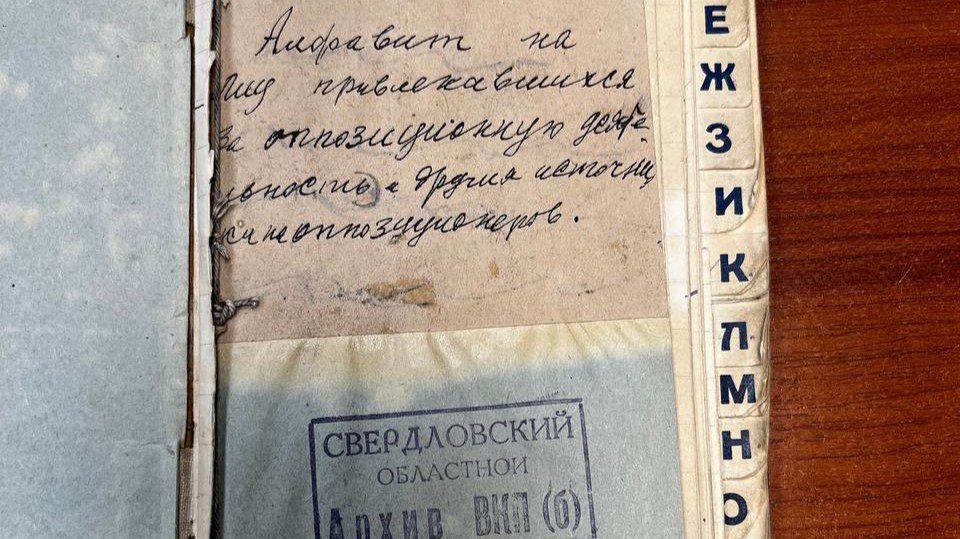 Алфавит на
лиц привлекавшихся
за оппозиционную деяте-
льность и другия источни
ки на оппозиционеров.
СВЕРДЛОВСКИЙ
ОБЛАСТНОЙ
Архив ВКП (б)
Е
Ж
З
И
К
Л
М
Н
О